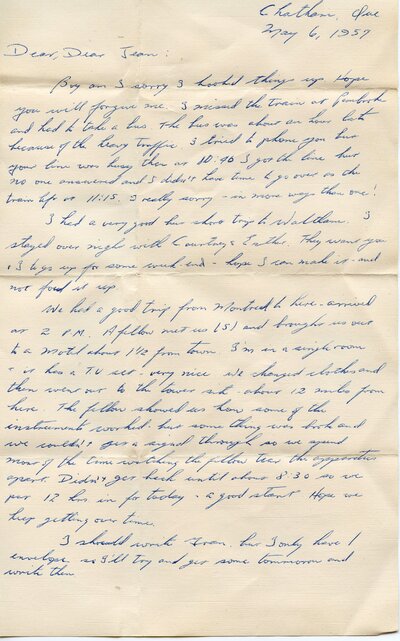 Chatham, Que
May 6, 1957
Dear, Dear Jean:
Boy am I sorry I hooked things up Hope
you will forgive me. I missed the train at Pembroke
and had to take a bus the bus was about an hour late
because of the heavy traffic I tried to phone you but
your line was busy then at 10:40 I got the line but
no one answered and I didn't have time to go over as the
train left at 11:15. I really sorry - in more ways than one!
I had a very good but short trip to Waltham. I
stayed over night with Courtney & Esther. They want you
& I to go up for some week-end - hope I can make it - and
not foul it up.
We had a good trip from Montreal to here - arrived
at 2 P.M. A fellow met us (5) and brought us over
to a motel about 1½ from town. I'm in a single room
- it has a TV set - very nice. We changed clothes and
then went out to the tower site - about 12 miles from
here. The fellow showed us how some of the
instruments worked. but some thing was broke and
we couldn't get a signal through so we spent
most of the time watching the fellow tear the apparatus
apart. Didn't get back until about 8:30 so we
put 12 hrs in for today - a good start Hope we
keep getting over time.
I should write Fran, but I only have 1
envelope, so I'll try and get some tommorrow and
write then